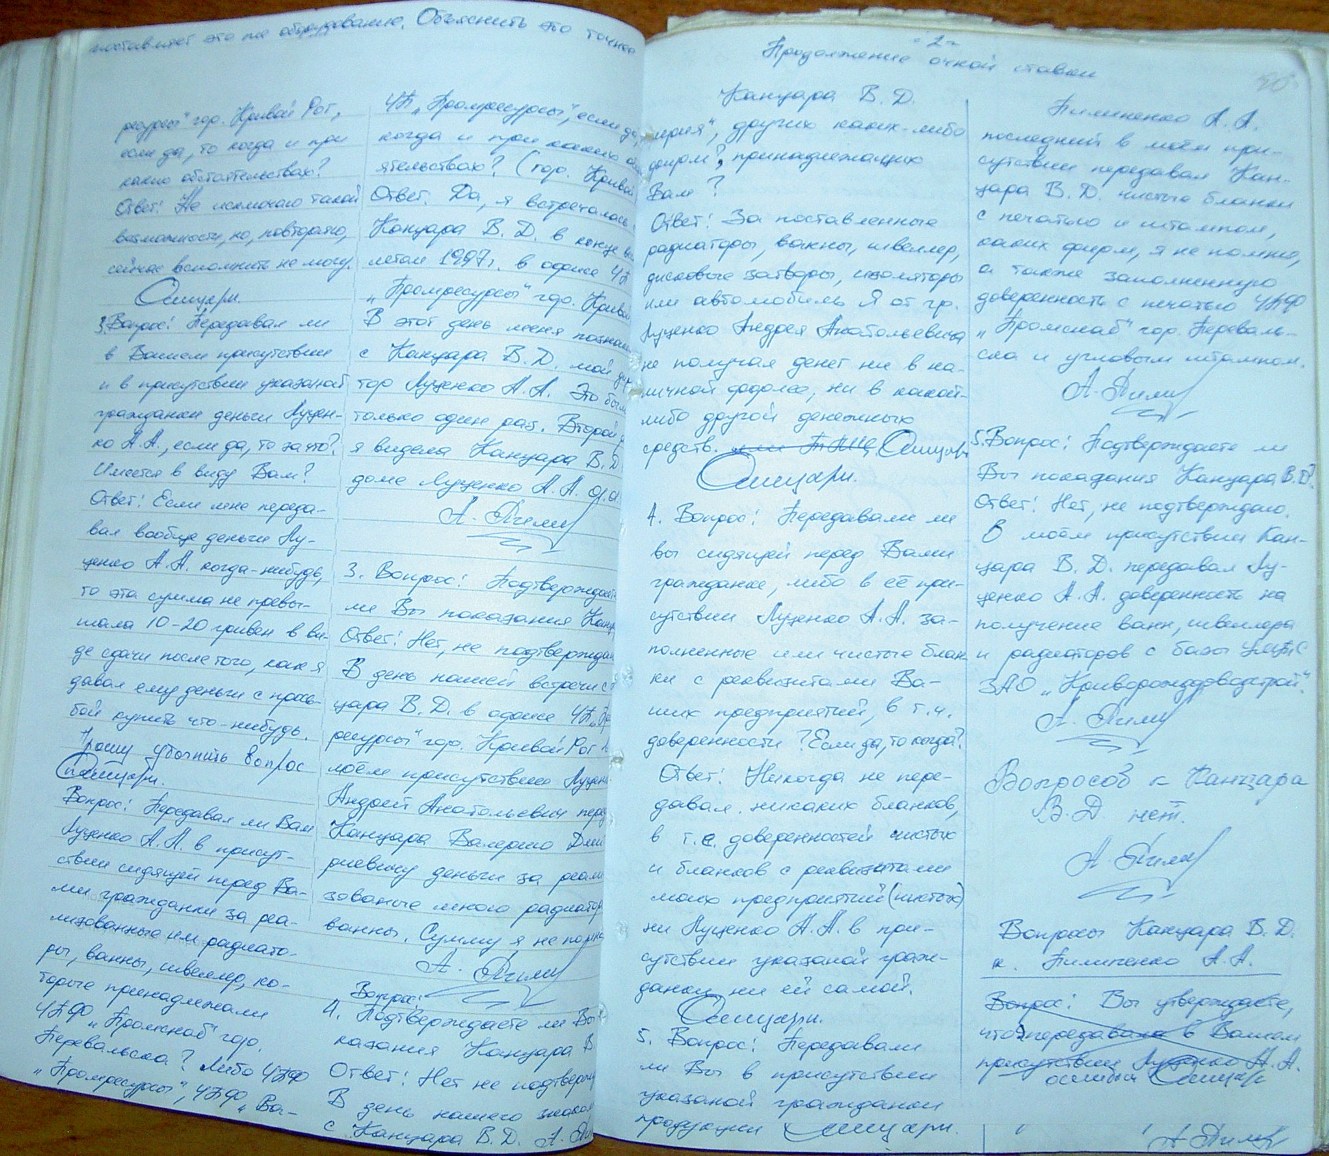 поставляет это же оборудование. Объяснить это точнее
ресурсы" гор. Кривой Рог,
если да, то когда и при
каких обстоятельствах?
Ответ: Не исключаю такой
возможности, но, повторяю,
сейчас вспомнить не могу.
3. Вопрос: Передавал ли
в Вашем присутствии
и в присутствии указаной
гражданки деньги Луцен-
ко А.А., если да, то за что?
Имеется в виду Вам?
Ответ: Если мне переда-
вал вообще деньги Лу-
ценко А.А. когда-нибудь,
то эта сумма не превы-
шала 10-20 гривен в ви-
де сдачи после того, как я
давал ему деньги с прось-
бой купить что-нибудь.
Прошу уточнить вопрос
Вопрос: Передавал ли Вам
Луценко А.А. в присут-
ствии сидящей перед Ва-
ми гражданки за реа-
лизованные им радиато-
ры, ванны, швеллер, ко-
торые принадлежали
ЧПФ „Промснаб" гор.
Перевальска? Либо ЧПФ
„Промресурсы", ЧПФ „Ва-
ЧП „Промресурсы", если да,
когда и при каких об
ятельствах? (гор. Кривой
Ответ: Да, я встречалась
Канцара В.Д. в конце
летом 1997г. в офисе ЧП
„Промресурсы" гор. Криво
В этот день меня познако
с Канцара В.Д. мой
Луценко А.А. Это был
только один раз. Второй
я видела Канцара В.Д.
дома Луценко А.А.
3. Вопрос: Подтверждаете
ли Вы показания Канц
Ответ: Нет, не подтверждаю
В день нашей встречи с
цара В.Д. в офисе ЧП „Пр
ресурсы" гор. Кривой Рог
моём присутствии Луцен
Андрей Анатольевич перед
Канцара Валерию Дми
риевичу деньги за реали
зованые много радиатор
ванны. Сумму я не помню
Вопрос:
4. Подтверждаете ли Вы
казания Канцара В
Ответ: Нет не подтвержд
В день нашего знаком
с Канцара В.Д.
- 2 -
Продолжение очной ставки
Канцара В.Д.
лерия", других каких-либо
фирм?, принадлежащих
Вам?
Ответ: За поставленные
радиаторы, ванны, швеллер,
дисковые затворы, изоляторы
или автомобиль я от гр.
Луценко Андрея Анатольевича
не получал денег ни в на-
личной форме, ни в какой-
либо другой денежных
средств.
4. Вопрос: Передавали ли
вы сидящей перед Вами
гражданке, либо в её при-
сутствии Луценко А.А. за-
полненные или чистые блан
ки с реквизитами Ва-
ших предприятий, в т.ч.
доверенности? Если да, то когда?
Ответ: Никогда не пере-
давал никаких бланков,
в т.ч. доверенностей чистых
и бланков с реквизитами
моих предприятий (чистых)
ни Луценко А.А. в при-
сутствии указаной граж-
данки, ни ей самой.
5. Вопрос: Передавали
ли Вы в присутствии
указаной гражданки
продукции
Пилипенко А.А.
последний в моём при-
сутствии передавал Кан-
цара В.Д. чистые бланки
с печатью и штампом,
каких фирм, я не помню,
а также заполненную
доверенность с печатью ЧПФ
„Промснаб" гор. Переваль-
ска и угловым штампом.
5. Вопрос: Подтверждаете ли
Вы показания Канцара В.Д?
Ответ: Нет, не подтверждаю.
В моём присутствии Кан-
цара В.Д. передавал Лу-
ценко А.А. доверенность на
получение ванн, швеллера
и радиаторов с базы
ЗАО „Криворождорводстрой".
Вопросов к Канцара
В.Д нет.
Вопросы Канцара В.Д.
к. Пилипенко А.А.
Вопрос: Вы утверждаете,
что передавал в Вашем
присутствии Луценко А.А.